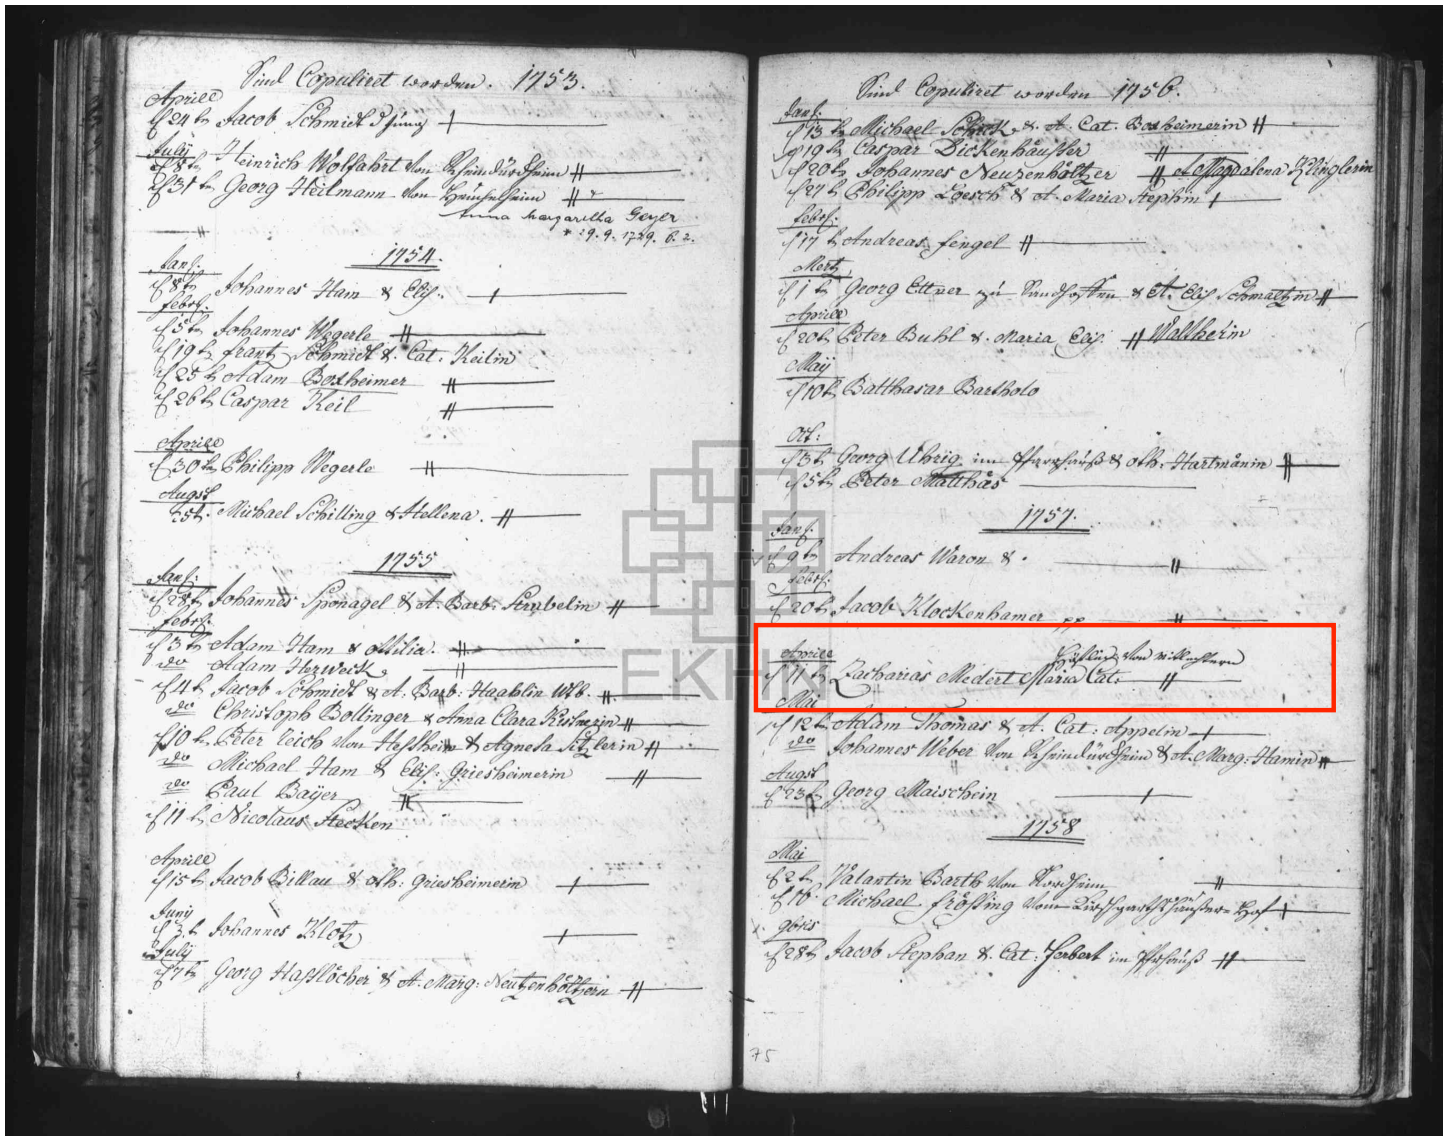 Sind Copuliret worden. 1753.
Aprill
24t Jacob Schmidt
July
8t Heinrich Wolfahrt von
31t Georg Heilmann von
Anna Margaretha Geyer
* 29.9.1729. b. 2.
1754.
Jan:
8t Johannes Ham & Elis.
Febr:
5t Johannes Wegerle
19t Frantz Schmidt & Cat: Keilin
25t Adam Boxheimer
26t Caspar Keil
Aprill
30t Philipp Wegerle
Augst
25t. Michael Schilling & Hellena.
1755
Jan:
28t Johannes Sponagel & A. Barb: Strubelin
Febr:
3t Adam Ham & Otilia.
do Adam Herweck
4t Jacob Schmidt & A. Barb. Haahlin Wtb.
do Christoph Bollinger & Anna Clara
10t Peter Reich von Hessheim & Agnesa Sitzlerin
do Michael Ham & Elis: Griesheimerin
do Paul Baÿer
11t Nicolaus Stecken
Aprill
15t Jacob Billau & Oth: Griesheimerin
Junÿ
3t Johannes Klotz
July
7t Georg Hasslöcher & A. Marg: Neutzenhöltzern
Sind Copuliret worden 1756.
Jan:
13t Michael Schick & A. Cat. Boxheimerin
19t Caspar Dickenhäusser
20t Johannes Neutzenhöltzer A Magdalena Klinglerin
27t Philipp Loesch & A. Maria Stephin
Febr:
17t Andreas Fengel
Mertz
1t Georg Ettner zu Sandhoffen & A. Elis Schmaltzin
Aprill
20t Peter Buhl & Maria Elis. Waltherin
Maÿ
10t Balthasar Bartholo
Oct:
3t Georg Uhrig im Pfarrhauß & Oth: Hartmänin
5t Peter Matthäs
1757.
Jan:
9t Andreas Waron &
Febr:
20t Jacob Klockenhamer pp
Aprill
11t Zacharias Medert Maria Cat:
von
Mai
12t Adam Thomas & A. Cat: Appelin
do Johannes Weber von & A. Marg: Hamin
Augst
23t Georg Maischein
1758
Mai
2t Valantin Barth von Nordheim
16. Michael Frössing vom Hof
9bris
28t Jacob Stephan & Cat: Herbert im Pfrhauß
75
EKHN